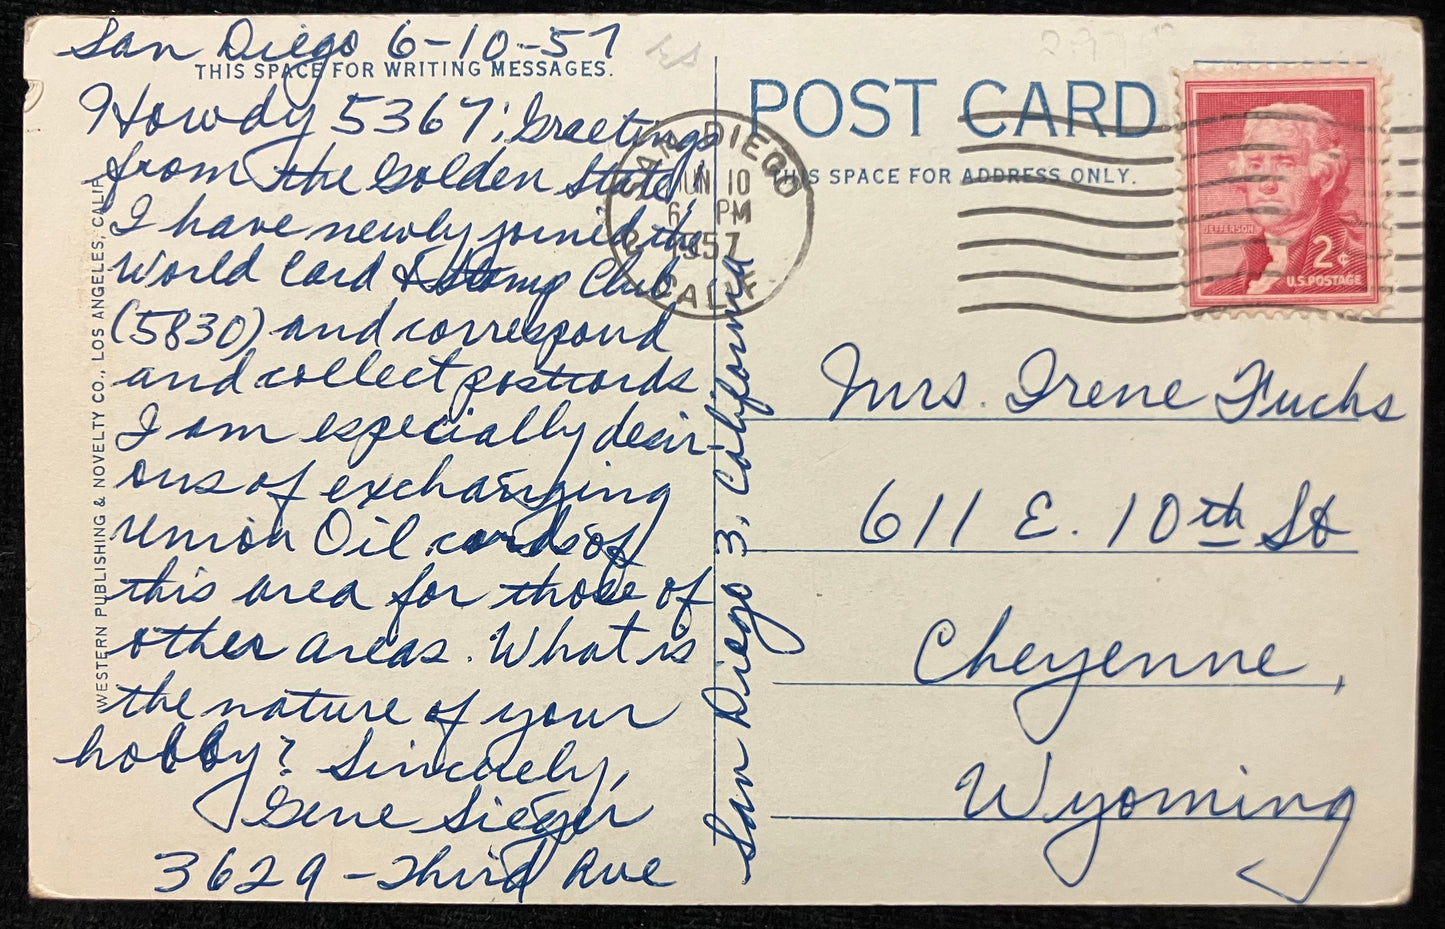 San Diego 6-10-57
THIS SPACE FOR WRITING MESSAGES.
Howdy 5367; Greetings
from the Golden State!
I have newly joined the
World Card & Stamp Club
(5830) and correspond
and collect postcards
I am especially desir
ous of exchanging
Union Oil cards of
this area for those of
other areas. What is
the nature of your
hobby? Sincerely,
Gene Sieger
3629 - Third Ave
San Diego 3, California
WESTERN PUBLISHING & NOVELTY CO., LOS ANGELES, CALIF.
POST CARD
THIS SPACE FOR ADDRESS ONLY.
SAN DIEGO
JUN 10
6 PM
1957
CALIF.
JEFFERSON
2¢
U.S. POSTAGE
Mrs. Irene Fuchs
611 E. 10th St
Cheyenne,
Wyoming